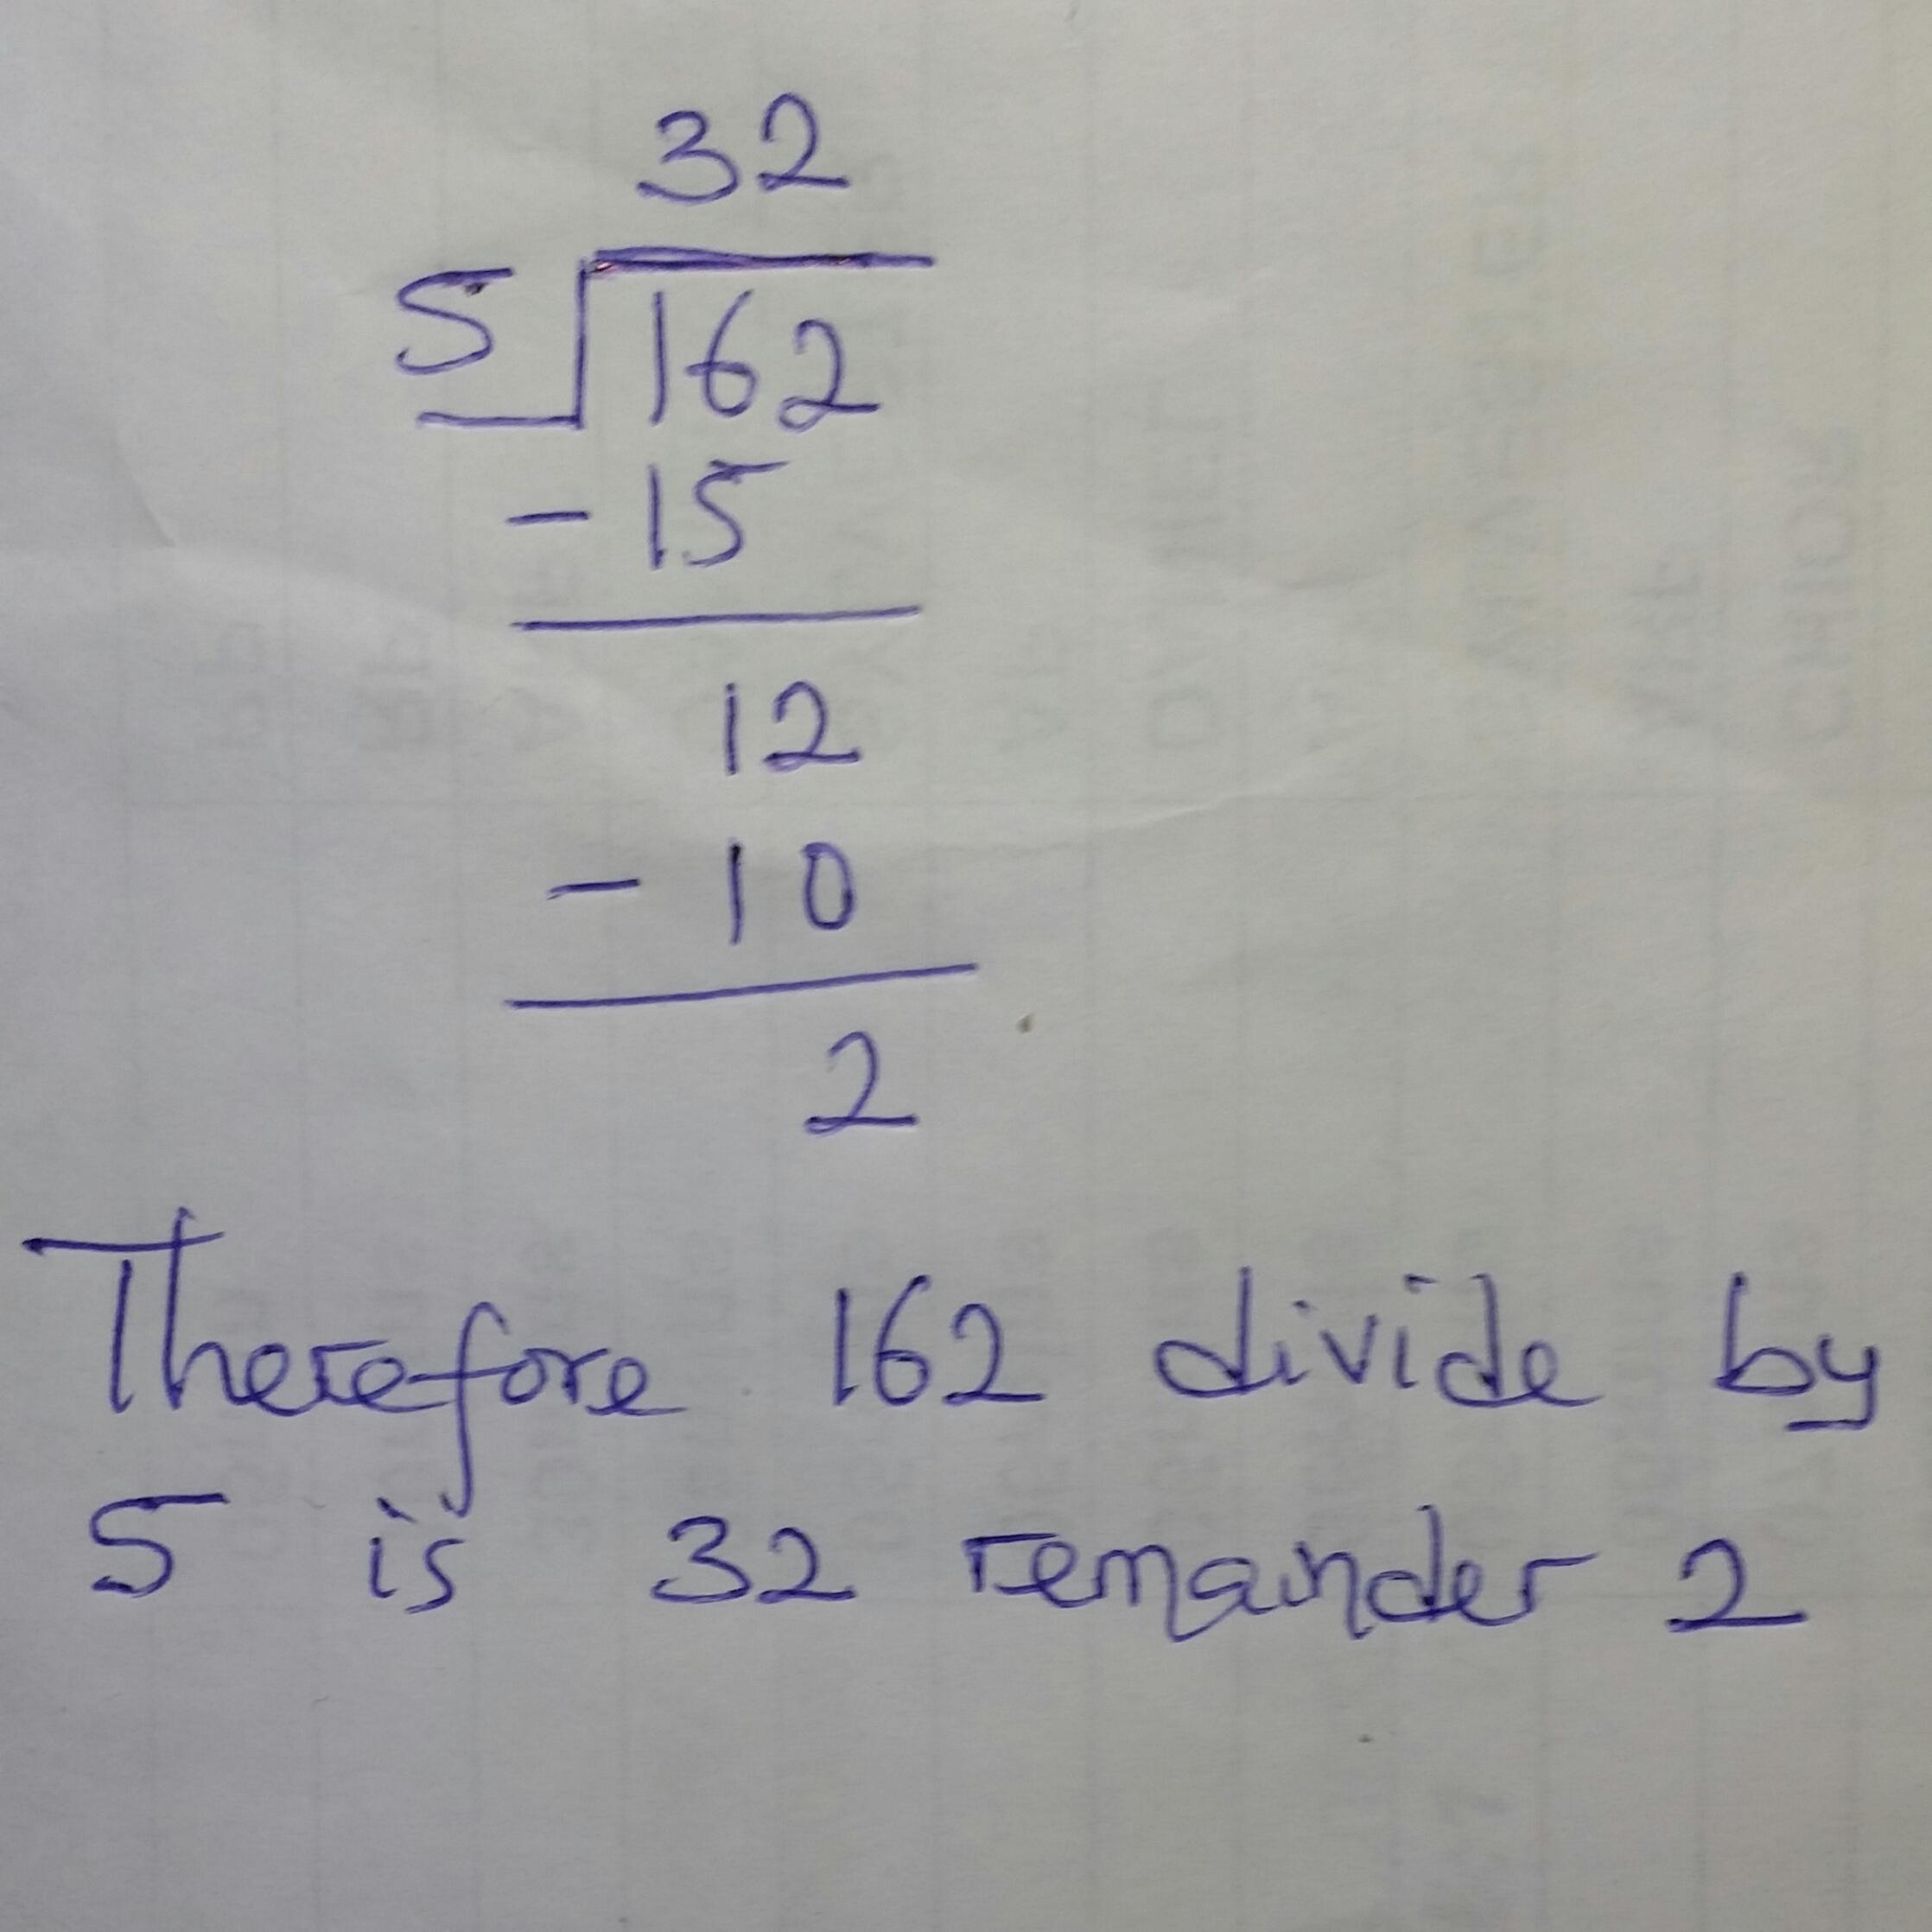 32
5 162
- 15
12
- 10
2
Therefore 162 divide by
5 is 32 remainder 2